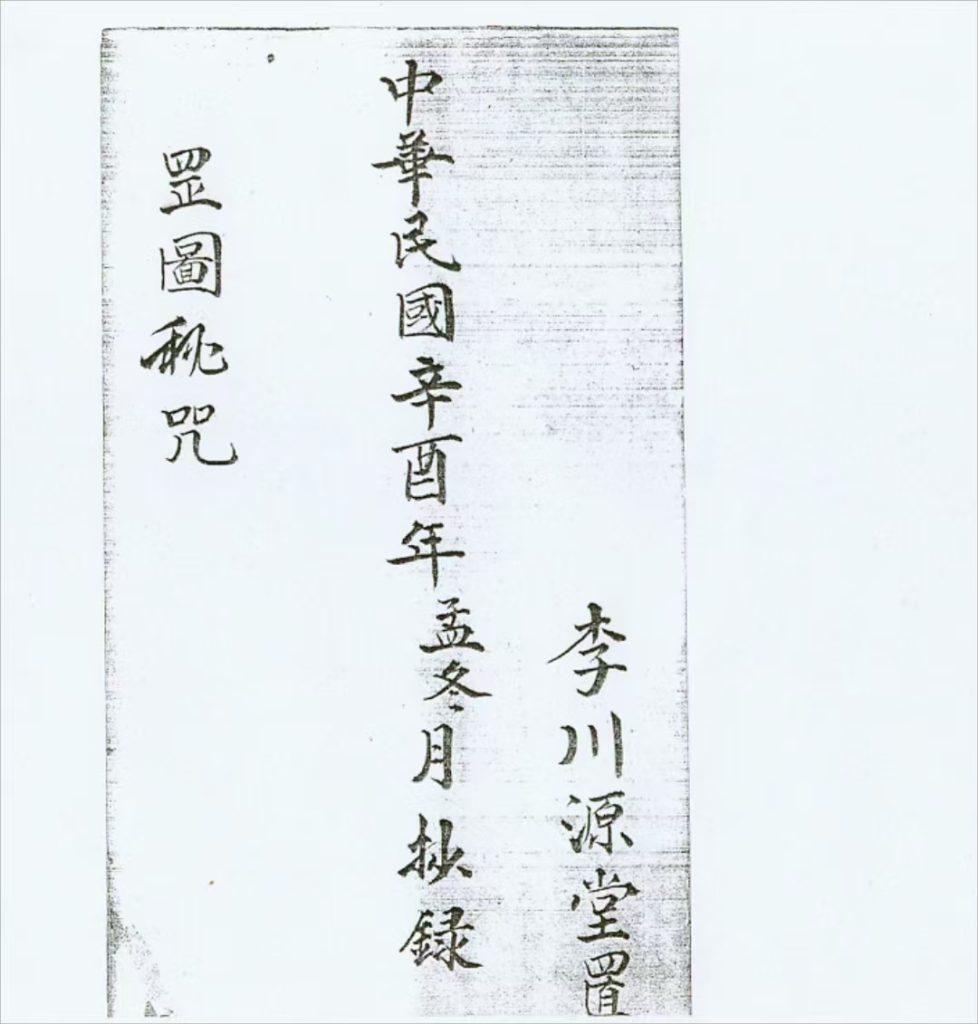 李川源堂置
中華民國辛酉年孟冬月抄録
罡圖秘咒